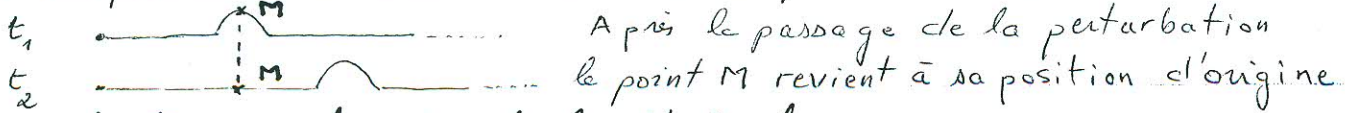 t₁ M Après le passage de la perturbation
M
t₂ le point M revient à sa position d'origine